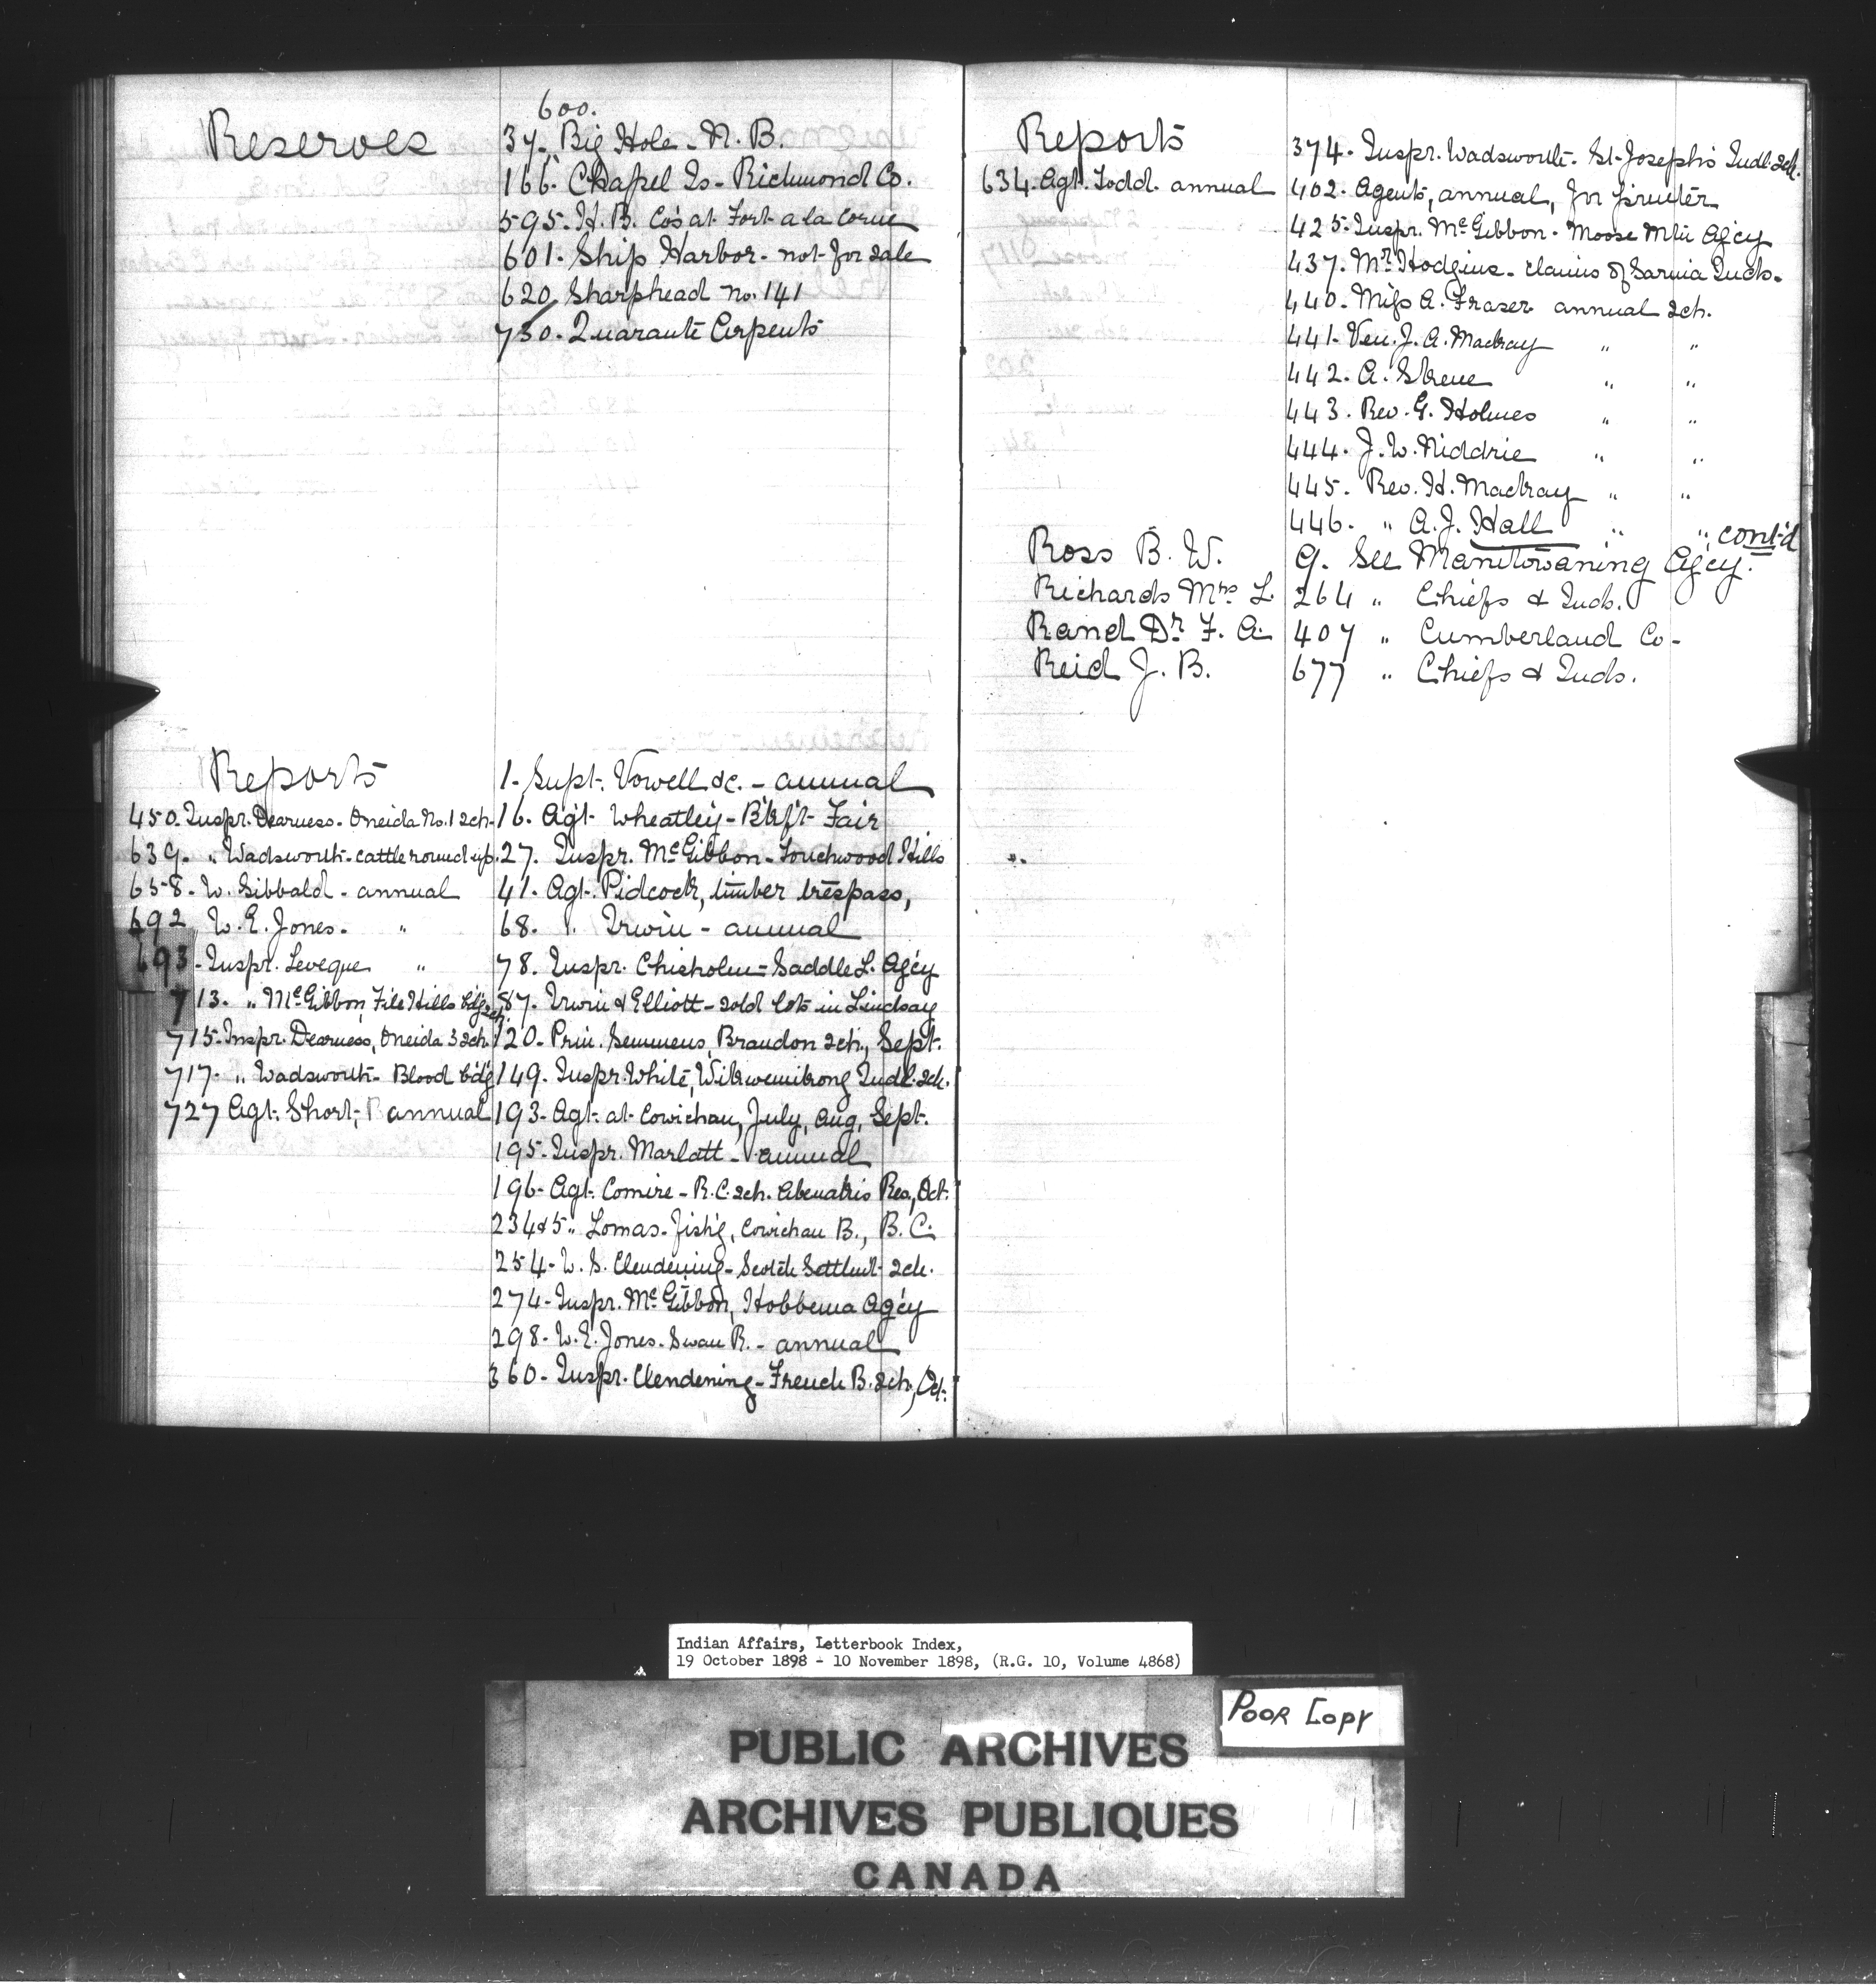 600.
Reserves
37. Big Hole - N. B.
166. Chapel Is - Richmond Co.
595. H. B. Co's at Fort a la Corne
601. Ship Harbor - not for sale
620. Sharphead no. 141
730. Quarante Arpents
Reports
450. Inspr. Dearness - Oneida No. 1 sch.
639. " Wadsworth - cattle round up.
658. W. Sibbald - annual
692 W. E. Jones. "
693 - Inspr. Leveque "
713. " McGibbon, File Hills b'd'g sch.
715. Inspr. Dearness, Oneida 3 sch.
717. " Wadsworth - Blood b'd'g
727 Agt. Short, annual
1. Supt. Vowell &c. - annual
16. Ag't. Wheatley - B'kf't Fair
27. Inspr. McGibbon - Touchwood Hills
41. Agt. Pidcock, timber trespass,
68. " Irwin - annual
78. Inspr. Chisholm - Saddle L. Ag'cy
87. Irwin & Elliott - sold lots in Lindsay
120. Prin. Semmens, Brandon sch., Sept.
149. Inspr. White, Wikwemikong Indl. sch.
193. Agt. at Cowichan, July, Aug, Sept.
195. Inspr. Marlatt - annual
196. Agt. Comire - R. C. sch. Abenakis Res, Oct.
234 & 5 " Lomas - fish'g, Cowichan B., B. C.
254 - W. S. Clendening - Scotch Settlm't sch.
274 - Inspr. McGibbon, Hobbema Ag'cy
298 - W. E. Jones - Swan R. - annual
360 - Inspr. Clendening - French B. sch, Oct.
Reports
634. Agt. Todd. annual
374. Inspr. Wadsworth - St. Joseph's Indl. sch.
402. Agents, annual, for printer
425. Inspr. McGibbon - Moose Mtn Ag'cy
437. Mr. Hodgins - claims of Sarnia Inds.
440. Miss A. Fraser annual sch.
441. Ven. J. A. Mackay " "
442. A. Skene " "
443. Rev. G. Holmes " "
444. J. W. Niddrie " "
445. Rev. H. Mackay " "
446. " A. J. Hall " " cont'd
Ross B. W. 9. See Manitowaning Ag'cy.
Richards Mrs. L. 264 " Chiefs & Inds.
Rand Dr. F. A. 407 " Cumberland Co -
Reid J. B. 677 " Chiefs & Inds.
Indian Affairs, Letterbook Index,
19 October 1898 - 10 November 1898, (R.G. 10, Volume 4868)
POOR COPY
PUBLIC ARCHIVES
ARCHIVES PUBLIQUES
CANADA